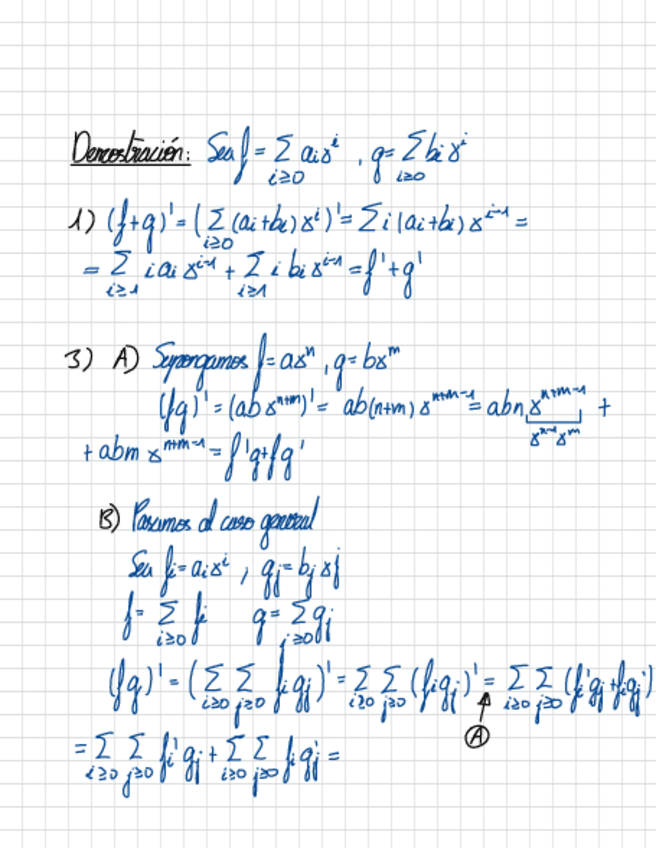 Demostración: Sea f = Σ_{i≥0} aᵢxⁱ , g = Σ_{i≥0} bᵢxⁱ
1) (f+g)' = (Σ_{i≥0} (aᵢ+bᵢ) xⁱ)' = Σ i (aᵢ+bᵢ) x^{i-1} =
= Σ_{i≥1} i aᵢ x^{i-1} + Σ_{i≥1} i bᵢ x^{i-1} = f' + g'
3) A) Supongamos f = axⁿ , g = bx^m
(fg)' = (ab x^{n+m})' = ab(n+m) x^{n+m-1} = abn x^{n+m-1} +
x^{n-1}x^m
+ abm x^{n+m-1} = f'g + fg'
B) Pasamos al caso general
Sea fᵢ = aᵢxⁱ , gⱼ = bⱼxj
f = Σ_{i≥0} fᵢ g = Σ_{j≥0} gⱼ
(fg)' = (Σ_{i≥0} Σ_{j≥0} fᵢgⱼ)' = Σ_{i≥0} Σ_{j≥0} (fᵢgⱼ)' = Σ_{i≥0} Σ_{j≥0} (fᵢ'gⱼ + fᵢgⱼ')
A
= Σ_{i≥0} Σ_{j≥0} fᵢ'gⱼ + Σ_{i≥0} Σ_{j≥0} fᵢgⱼ' =